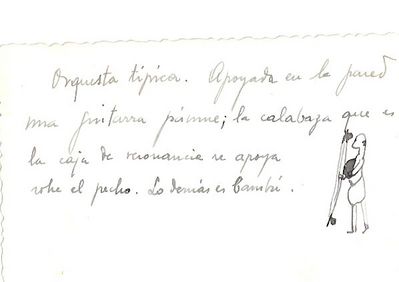 Orquesta típica. Apoyada en la pared
una guitarra pamue; la calabaza que es
la caja de resonancia se apoya
sobre el pecho. Lo demás es bambú.